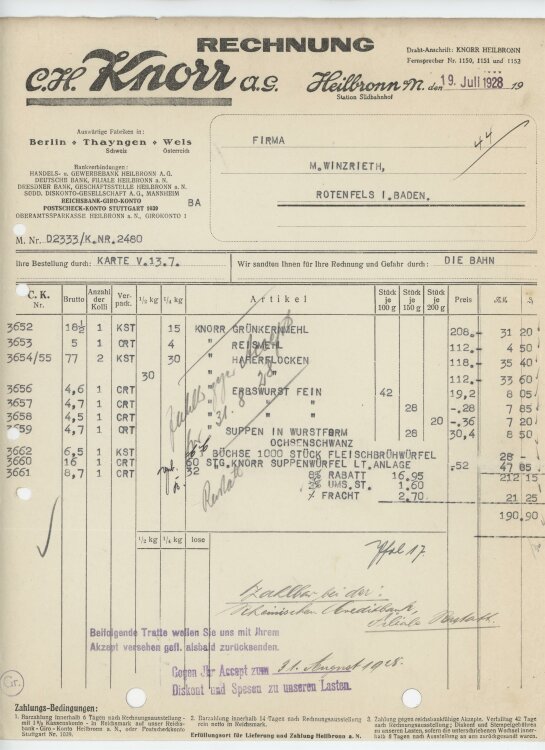 RECHNUNG
C.H. Knorr A.G.
Draht-Anschrift: KNORR HEILBRONN
Fernsprecher Nr. 1150, 1151 und 1152
Heilbronn a/N, den 19. Juli 1928 19
Station Südbahnhof
Auswärtige Fabriken in:
Berlin • Thayngen • Wels
Schweis Österreich
Bankverbindungen:
HANDELS- u. GEWERBEBANK HEILBRONN A.G.
DEUTSCHE BANK, FILIALE HEILBRONN a. N.
DRESDNER BANK, GESCHÄFTSSTELLE HEILBRONN a. N.
SÜDD. DISKONTO-GESELLSCHAFT A.G., MANNHEIM
REICHSBANK-GIRO-KONTO
POSTSCHECK-KONTO STUTTGART 1029
OBERAMTSSPARKASSE HEILBRONN a. N., GIROKONTO 1
BA
FIRMA
44
M. WINZRIETH,
ROTENFELS I. BADEN.
M. Nr. D2333/K.NR.2480
Ihre Bestellung durch: KARTE V.13.7.
Wir sandten Ihnen für Ihre Rechnung und Gefahr durch: DIE BAHN
C. K. Nr. Brutto Anzahl der Kolli Verpack. 1/2 kg 1/4 kg Artikel Stück je 100 g Stück je 150 g Stück je 200 g Preis
3652 18½ 1 KST 15 KNORR GRÜNKERNMEHL 208.- 31 20
3653 5 1 CRT 4 " REISMEHL 112.- 4 50
3654/55 77 2 KST 30 " HAFERFLOCKEN 118.- 35 40
30 " " 112.- 33 60
3656 4,6 1 CRT " ERBSWURST FEIN 42 19,2 8 05
3657 4,7 1 CRT " " " 28 -.28 7 85
3658 4,5 1 CRT " " " 20 -.36 7 20
3659 4,7 1 CRT " SUPPEN IN WURSTFORM 28 30,4 8 50
OCHSENSCHWANZ
3662 6,5 1 KST BÜCHSE 1000 STÜCK FLEISCHBRÜHWÜRFEL 28 -
3660 16 1 CRT 60 STG. KNORR SUPPENWÜRFEL LT. ANLAGE -.52 47 85
3661 8,7 1 CRT 32
8% RABATT 16.95 212 15
UMS.ST. 1.60
% FRACHT 2.70 21 25
190.90
1/2 kg 1/4 kg lose
Zahlbar bei der:
Rheinischen Creditbank,
Filiale Rastatt.
Beifolgende Tratte wollen Sie uns mit Ihrem
Akzept versehen gefl. alsbald zurücksenden.
Gegen Ihr Accept zum 31. August 1928.
Diskont und Spesen zu unseren Lasten.
Gr.
Zahlungs-Bedingungen:
1. Barzahlung innerhalb 6 Tagen nach Rechnungsausstellung - mit 1½% Kassenskonto - in Reichsmark auf unser Reichsbank-Giro-Konto Heilbronn a. N., oder Postscheckkonto Stuttgart Nr. 1029.
2. Barzahlung innerhalb 14 Tagen nach Rechnungsausstellung rein netto in Reichsmark.
3. Zahlung gegen reichsbankfähige Akzepte. Verfalltag 42 Tage nach Rechnungsausstellung. Diskont- und Stempelgebühren zu unseren Lasten, sofern die unterschriebenen Wechsel innerhalb 8 Tagen nach Ausstellung an uns zurückgesandt waren.
Erfüllungsort für Lieferung und Zahlung Heilbronn a. N.